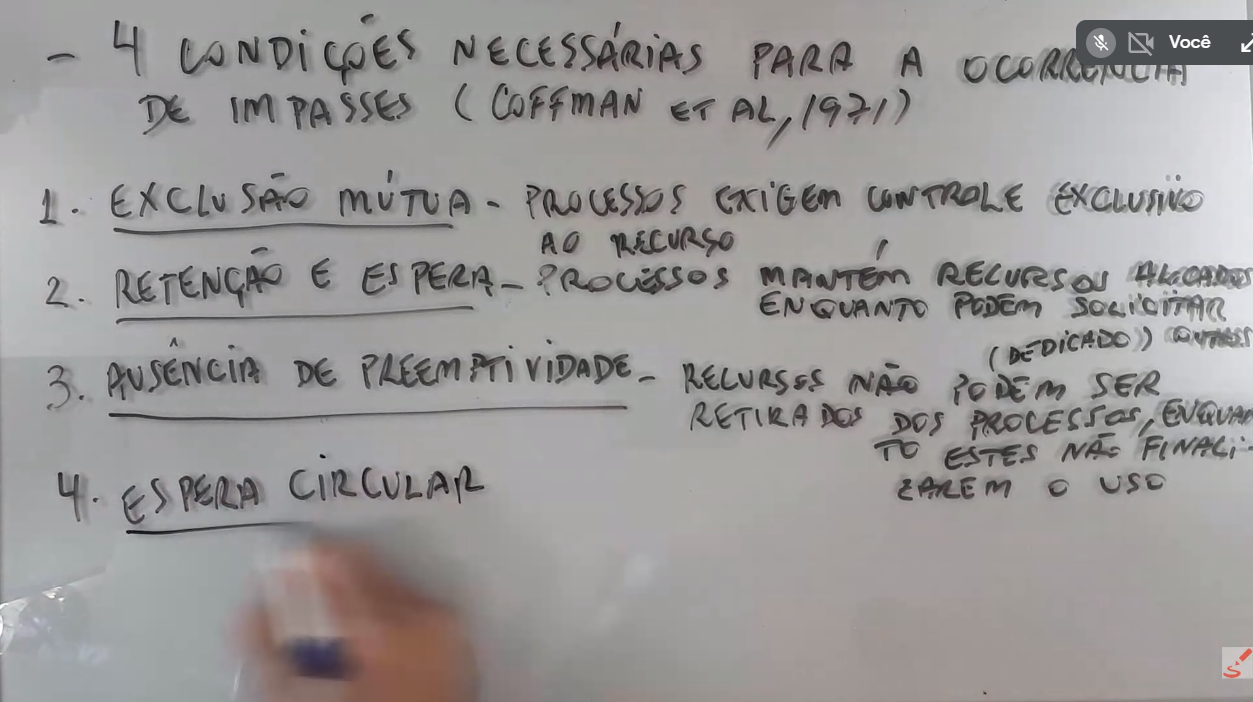 Você
- 4 CONDIÇÕES NECESSÁRIAS PARA A OCORRÊNCIA
DE IMPASSES (COFFMAN ET AL, 1971)
1. EXCLUSÃO MÚTUA - PROCESSOS EXIGEM CONTROLE EXCLUSIVO
AO RECURSO
2. RETENÇÃO E ESPERA - PROCESSOS MANTÉM RECURSOS ALOCADOS
ENQUANTO PODEM SOLICITAR
(DEDICADO) OUTROS
3. AUSÊNCIA DE PREEMPTIVIDADE - RECURSOS NÃO PODEM SER
RETIRADOS DOS PROCESSOS, ENQUAN
TO ESTES NÃO FINALI-
ZAREM O USO
4. ESPERA CIRCULAR